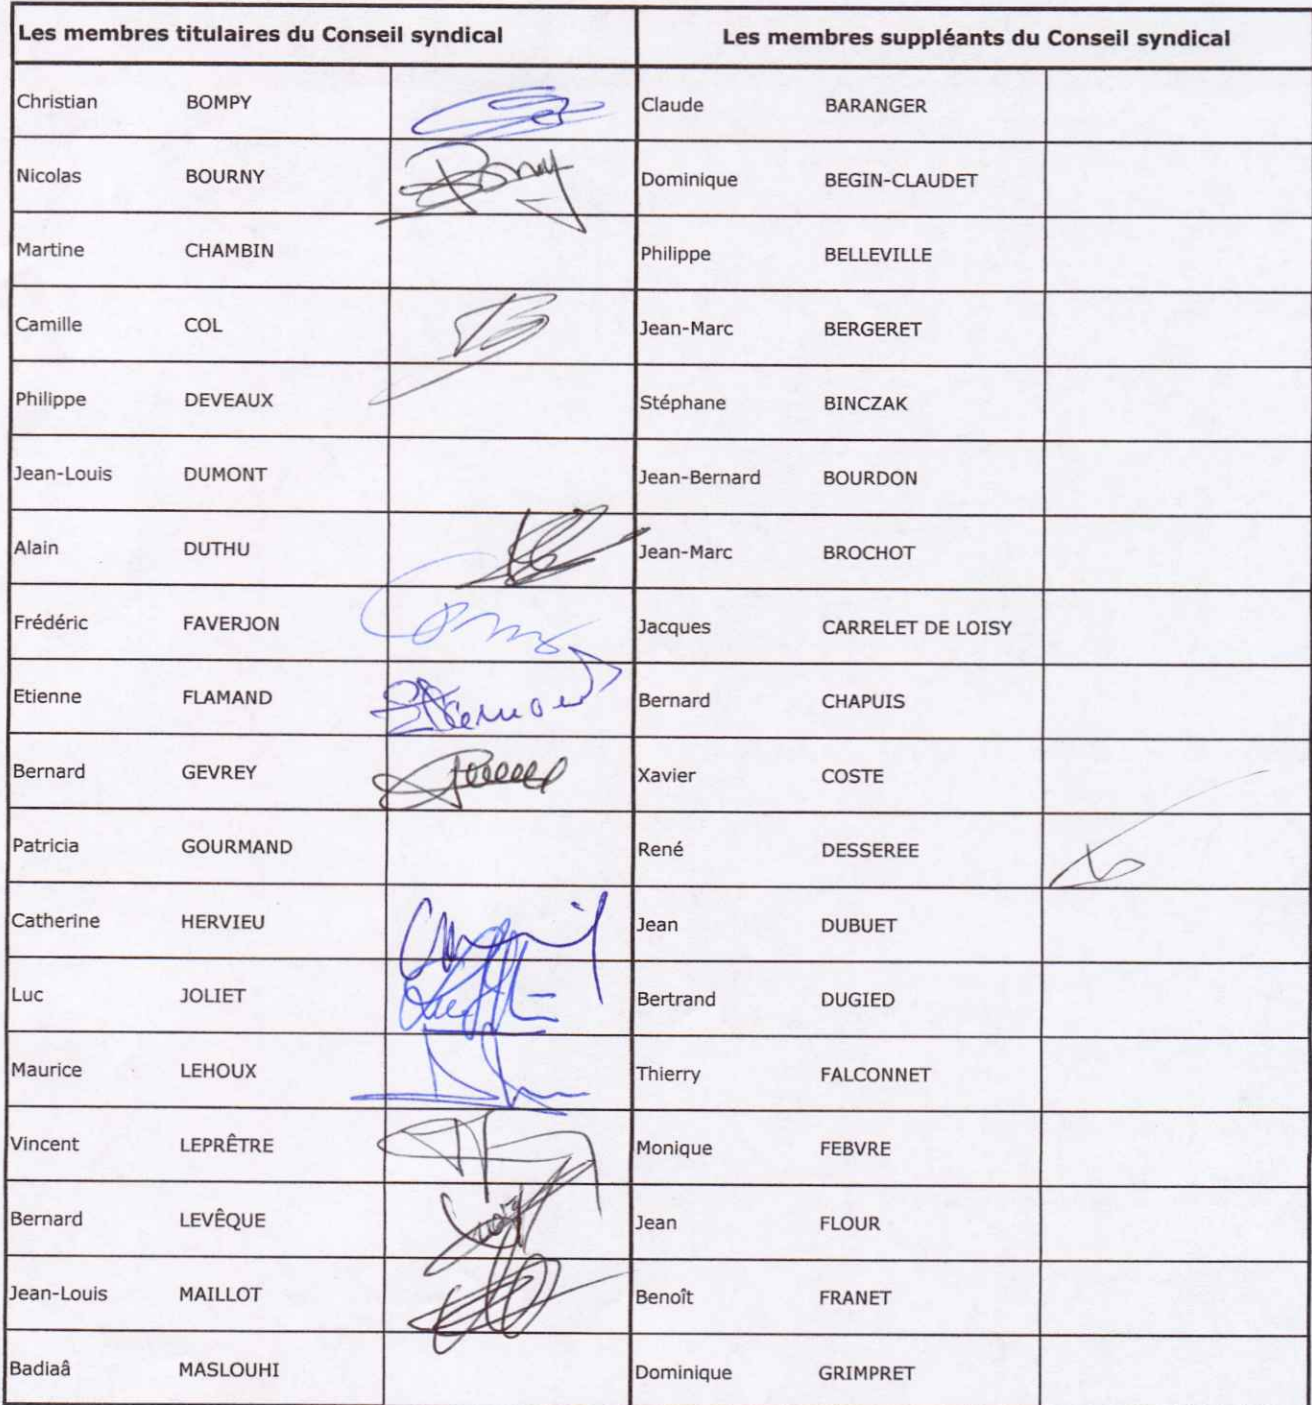 Les membres titulaires du Conseil syndical Les membres suppléants du Conseil syndical
Christian BOMPY Claude BARANGER
Nicolas BOURNY Dominique BEGIN-CLAUDET
Martine CHAMBIN Philippe BELLEVILLE
Camille COL Jean-Marc BERGERET
Philippe DEVEAUX Stéphane BINCZAK
Jean-Louis DUMONT Jean-Bernard BOURDON
Alain DUTHU Jean-Marc BROCHOT
Frédéric FAVERJON Jacques CARRELET DE LOISY
Etienne FLAMAND Bernard CHAPUIS
Bernard GEVREY Xavier COSTE
Patricia GOURMAND René DESSEREE
Catherine HERVIEU Jean DUBUET
Luc JOLIET Bertrand DUGIED
Maurice LEHOUX Thierry FALCONNET
Vincent LEPRÊTRE Monique FEBVRE
Bernard LEVÊQUE Jean FLOUR
Jean-Louis MAILLOT Benoît FRANET
Badiaâ MASLOUHI Dominique GRIMPRET